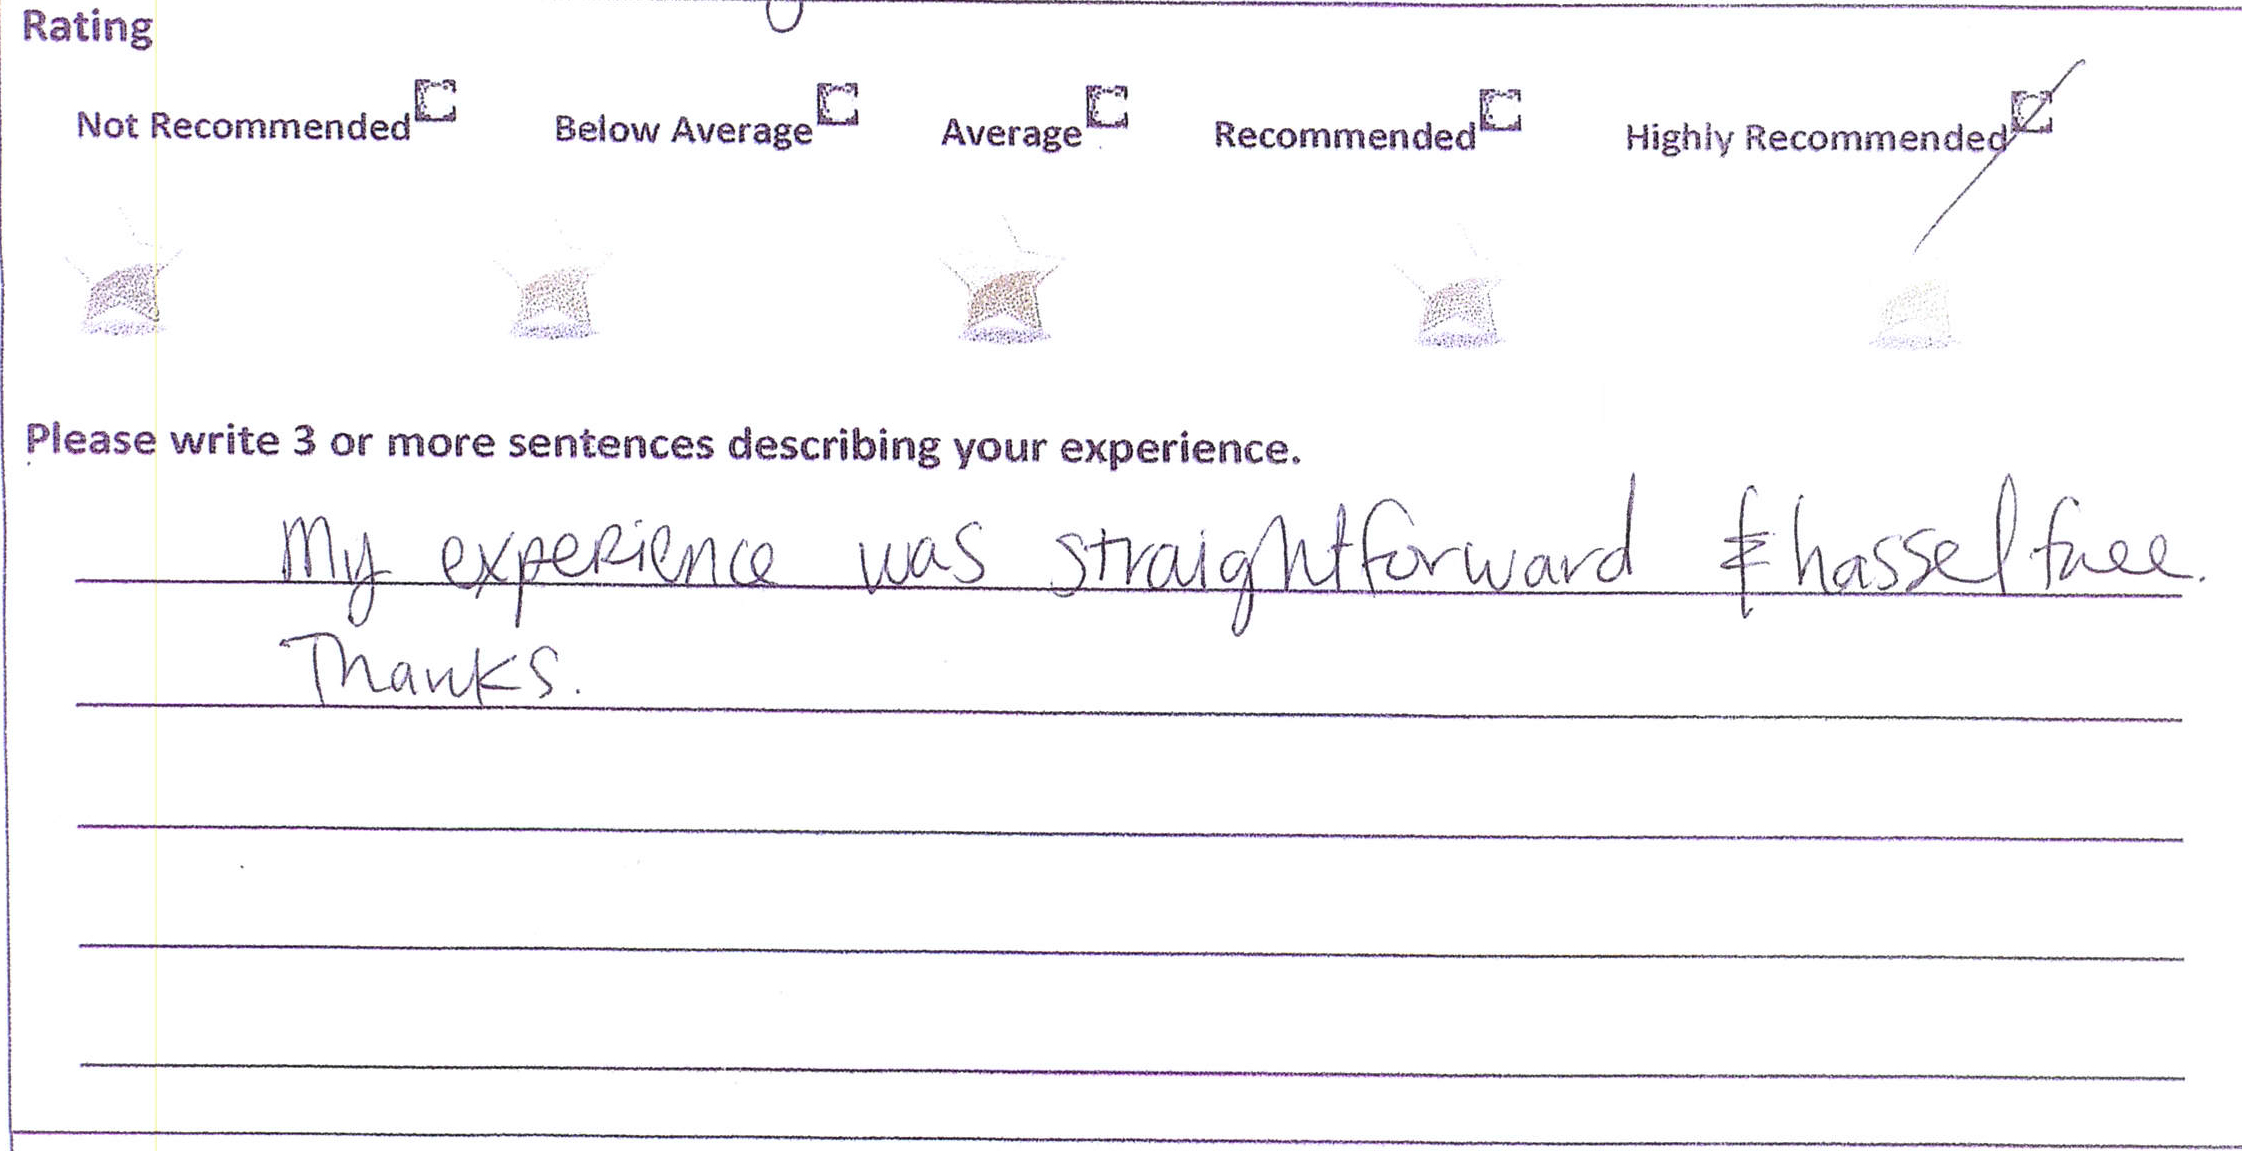 Rating
Not Recommended Below Average Average Recommended Highly Recommended
Please write 3 or more sentences describing your experience.
My experience was straightforward & hassel free.
Thanks.